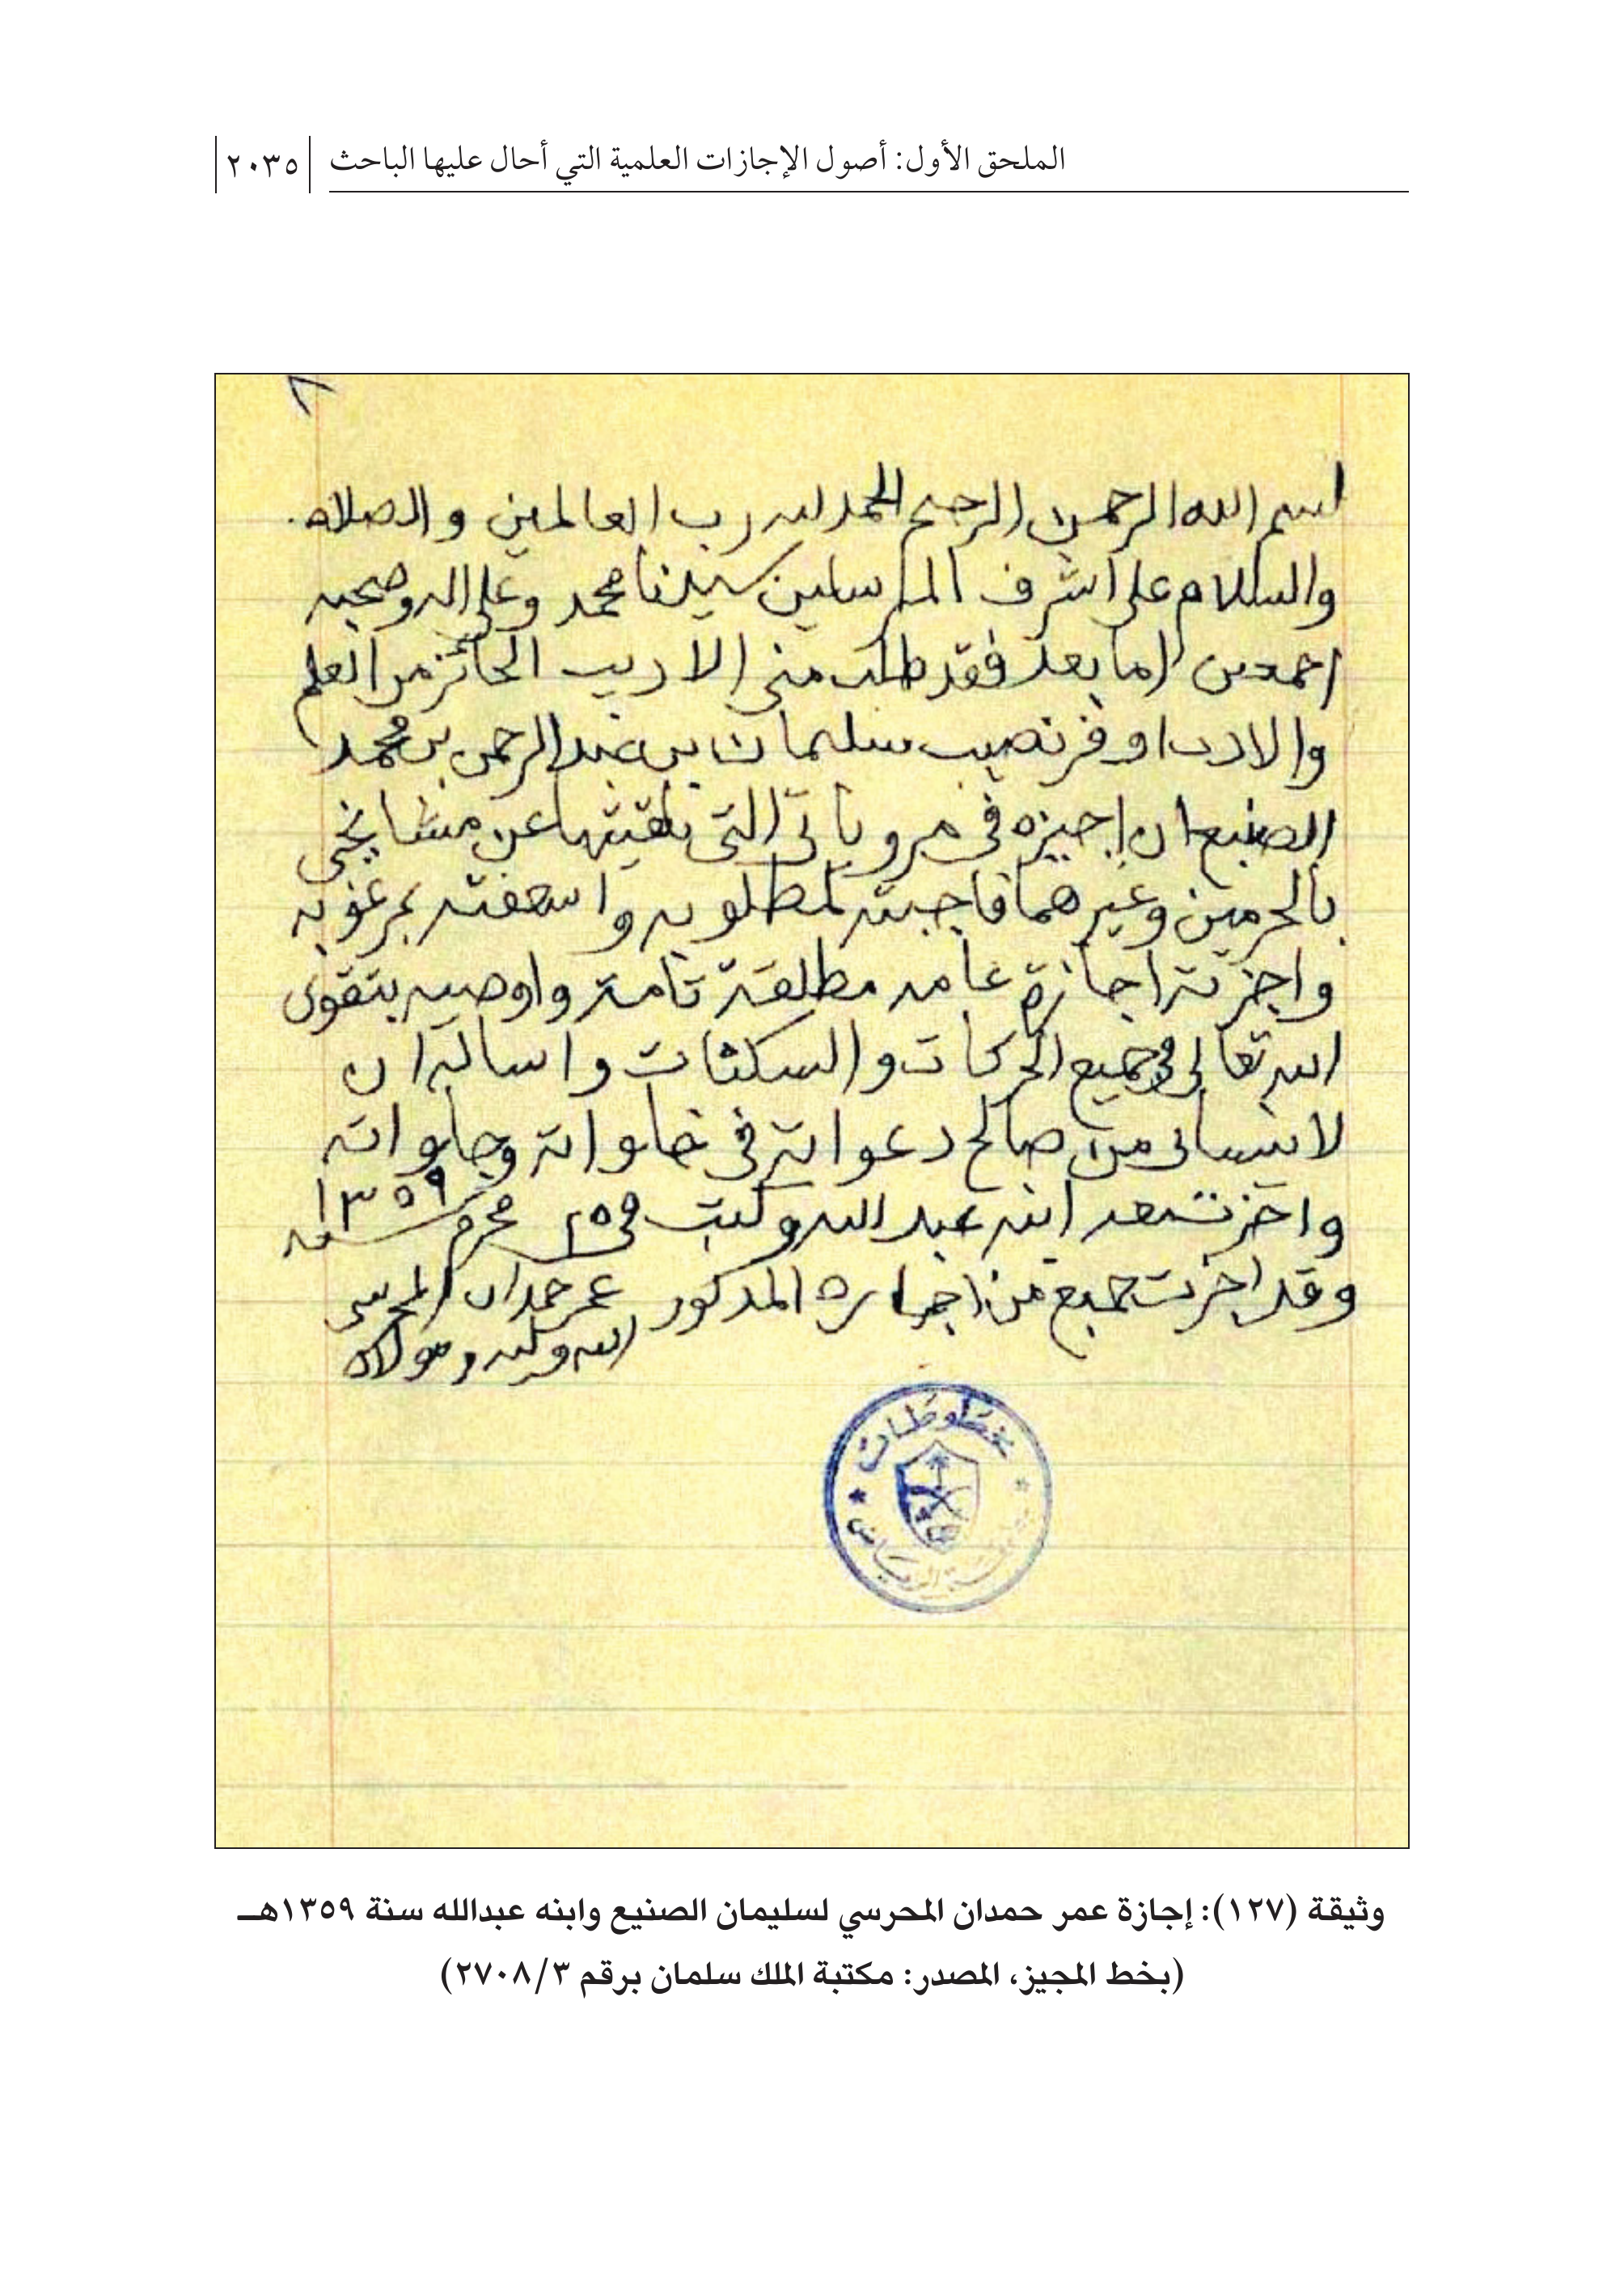 الملحق الأول: أصول الإجازات العلمية التي أحال عليها الباحث ٢٠٣٥
بسم الله الرحمن الرحيم الحمد لله رب العالمين والصلاه
والسلام على اشرف المرسلين سيدنا محمد وعلى اله وصحبه
اجمعين اما بعد فقد طلب مني الاديب الحائز من العلم
والادب اوفر نصيب سليمان بن عبد الرحمن بن محمد
الصنيع ان اجيزه في مروياتي التي تلقيتها عن مشايخي
بالحرمين وغيرهما فاجبته لمطلوبه واسعفته بمرغوبه
واجزته اجازة عامه مطلقة تامة واوصيه بتقوى
الله تعالى في جميع الحركات والسكنات واساله ان
لا ينساني من صالح دعواته في خلواته وجلواته
واجزت معه ابنه عبد الله وكتب في ٢٥ محرم سنه ١٣٥٩
وقد اجزت جميع من اجازه المذكور عمر حمدان المحرسي
الله وليه ومولاه
مخطوطات
وثيقة (١٢٧): إجازة عمر حمدان المحرسي لسليمان الصنيع وابنه عبدالله سنة ١٣٥٩هـ
(بخط المجيز، المصدر: مكتبة الملك سلمان برقم ٢٧٠٨/٣)